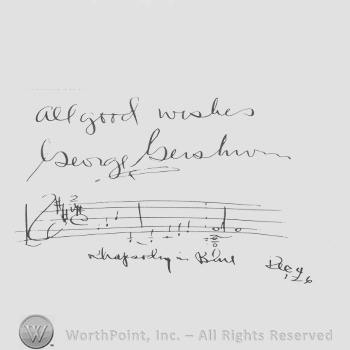 All good wishes
George Gershwin
Rhapsody in Blue
Dec 4
1926
W WorthPoint, Inc. – All Rights Reserved